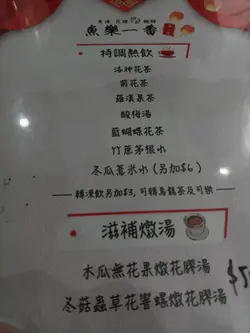 魚樂一番
特調熱飲
洛神花茶
菊花茶
羅漢果茶
酸梅湯
藍蝴蝶花茶
竹蔗茅根水
冬瓜薏米水（另加$6）
轉凍飲另加$3，可轉烏龍茶及可樂
滋補燉湯
木瓜無花果燉花膠湯
冬菇蟲草花響螺燉花膠湯